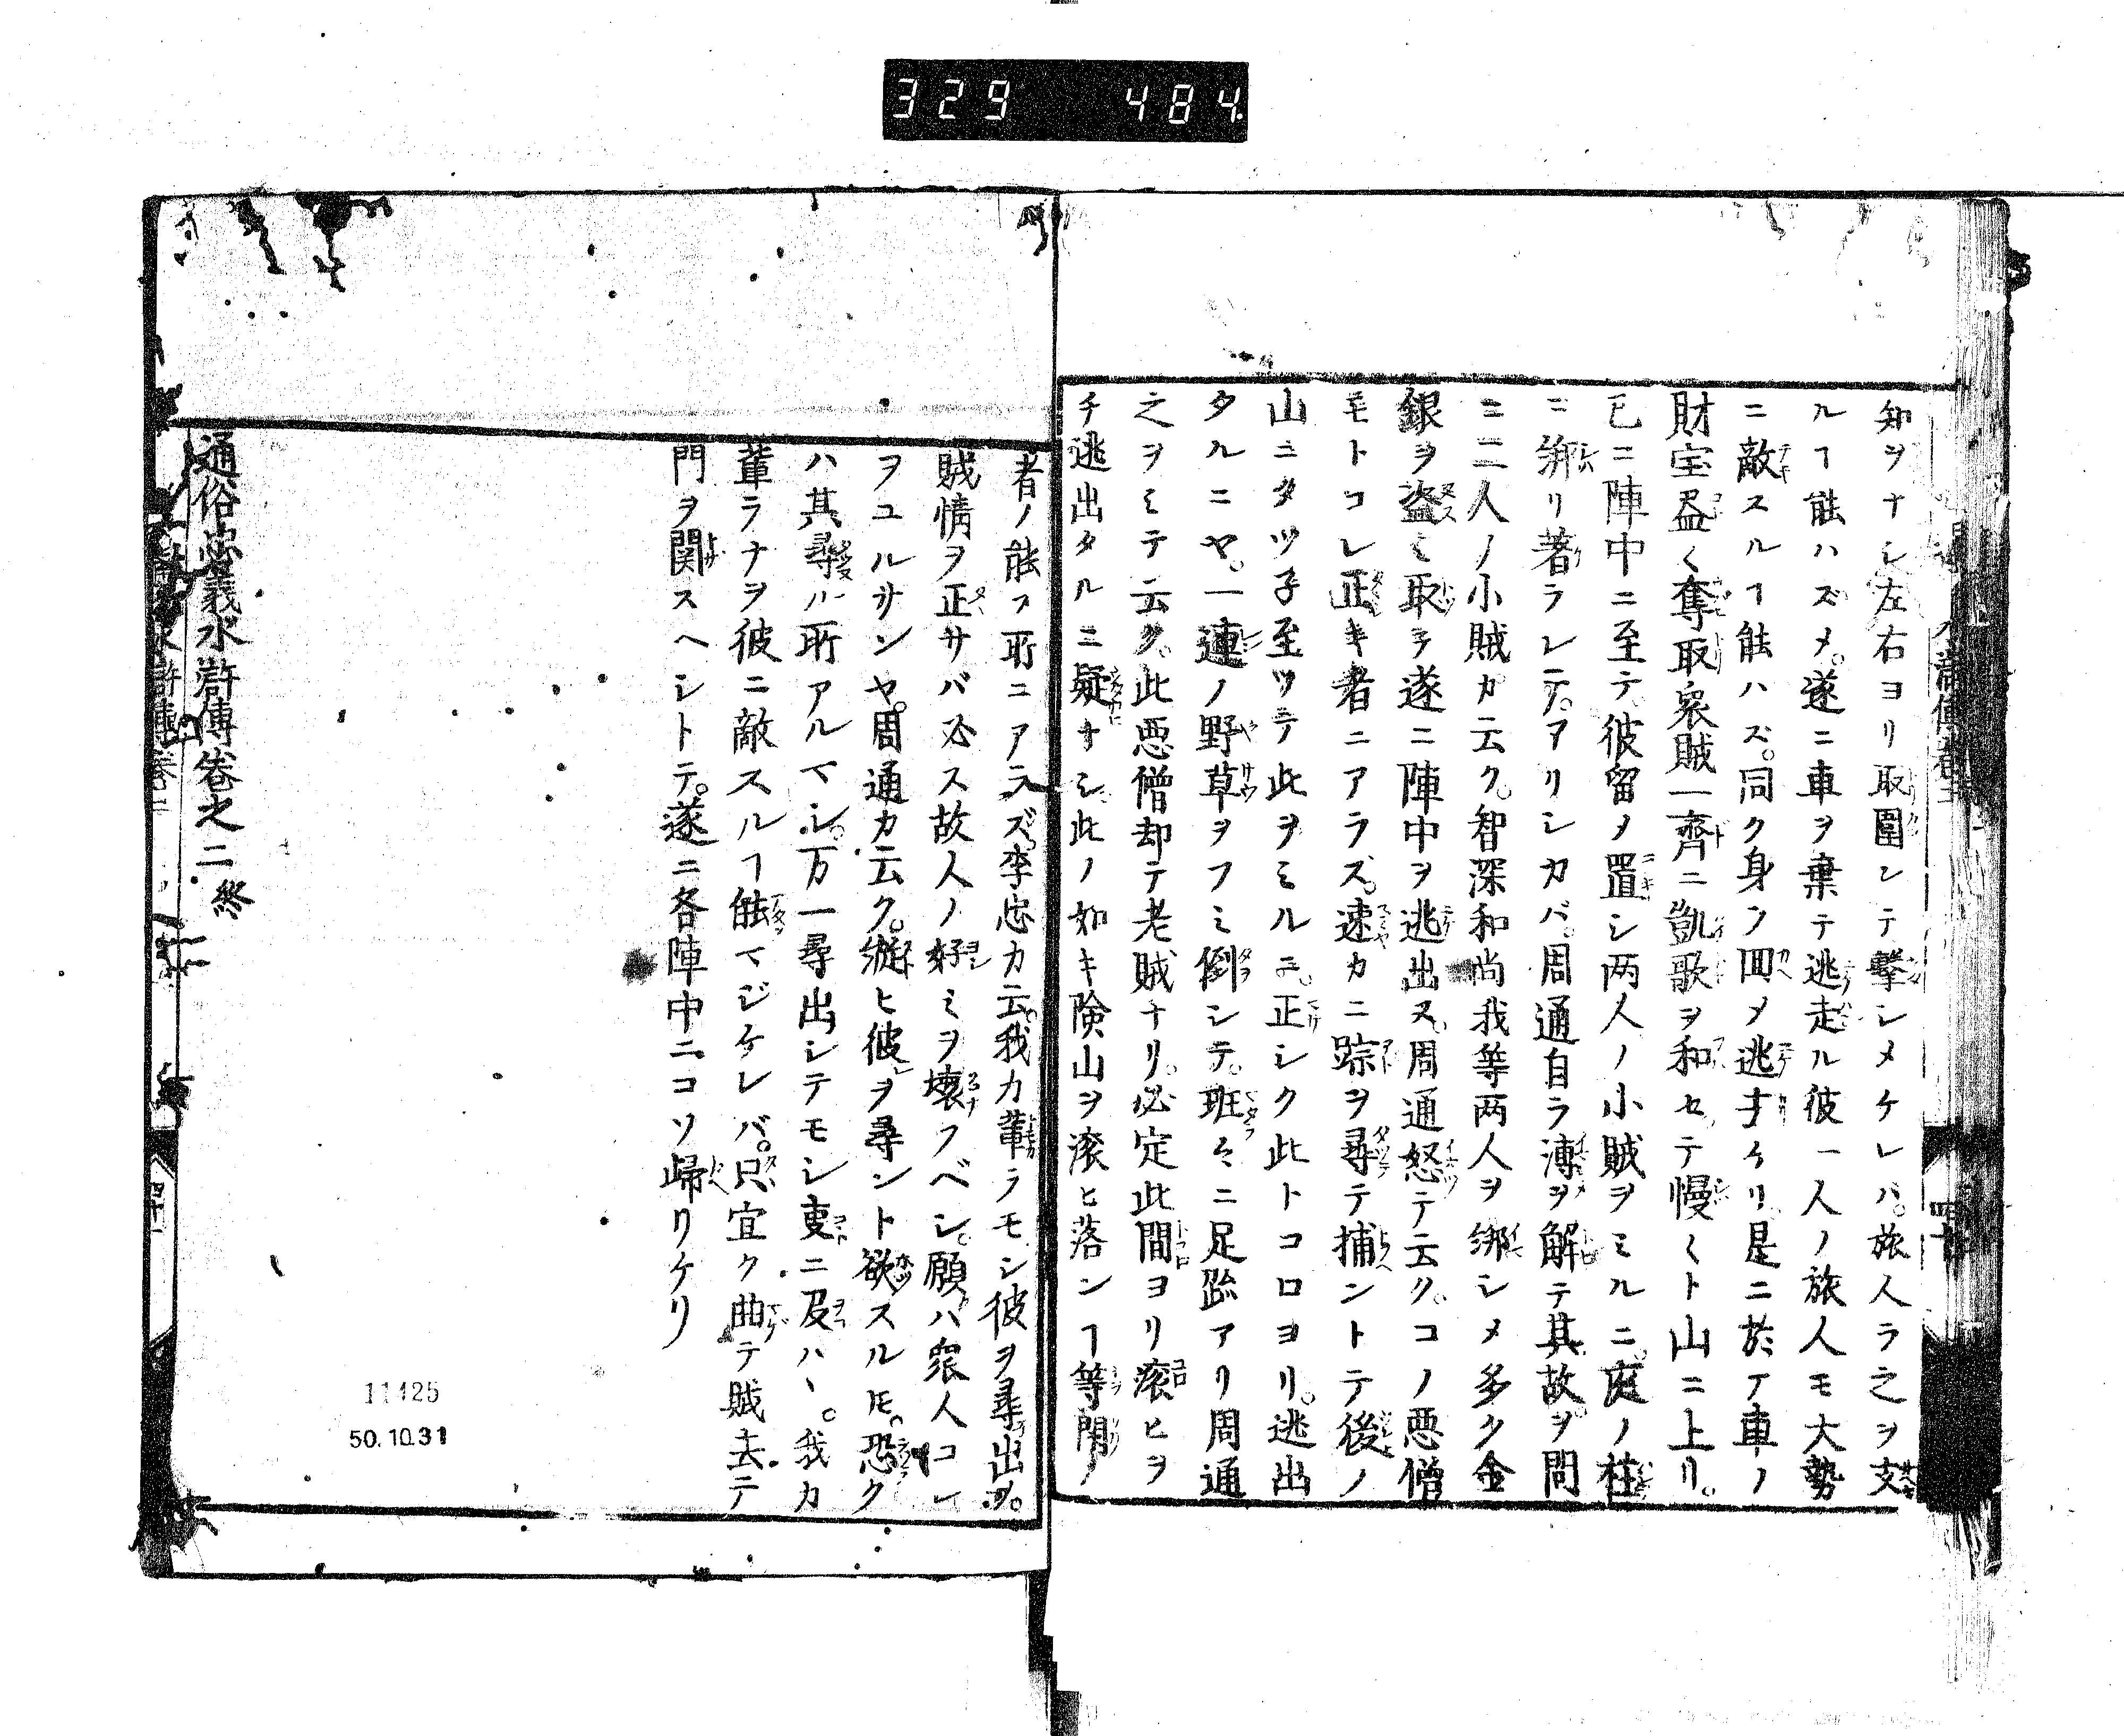 329 484
知ヲナシ左右ヨリ取圍ンテ撃シメケレバ。旅人ラ之ヲ支
ルヿ能ハズメ。遂ニ車ヲ棄テ逃走ル彼一人ノ旅人モ大勢
ニ敵スルヿ能ハズ。同ク身ヲ回メ逃ケリ。是ニ於テ車ノ
財宝盡ク奪取衆賊一齊ニ凱歌ヲ和セテ慢〱ト山ニ上リ。
已ニ陣中ニ至テ。彼留メ置シ两人ノ小賊ヲミルニ。庭ノ柱
ニ綁リ著ラレテ。アリシカバ。周通自ラ縛ヲ解テ其故ヲ問
ニ二人ノ小賊カ云ク。智深和尚我等两人ヲ綁シメ多ク金
銀ヲ盗ミ取ヲ遂ニ陣中ヲ逃出ヌ。周通怒テ云ク。コノ悪僧
モトコレ正キ者ニアラズ。速カニ踪ヲ尋テ捕ントテ後ノ
山ニタツ子至ツテ此ヲミルニ。正シク此トコロヨリ。逃出
タルニヤ。一連ノ野草ヲフミ倒シテ。班々ニ足跡アリ周通
之ヲミテ云ク。此悪僧却テ老賊ナリ。必定此間ヨリ滚ヒヲ
チ逃出タルニ疑ナシ。此ノ如キ険山ヲ滚ヒ落ンヿ等閑ノ
者ノ能フ所ニアラズ。李忠カ云。我カ輩ラモシ彼ヲ尋出ヲ。
賊情ヲ正サバ必ス故人ノ好ミヲ壊フベシ。願ハ衆人コレ
ヲユルサンヤ。周通カ云ク。縦ヒ彼ヲ尋ント欲スルモ。恐ク
ハ其尋ル所アルマシ。万一尋出シテモシ吏ニ及ハヽ。我カ
輩ラナヲ彼ニ敵スルヿ能マジケレバ。只宜ク曲テ賊去テ
門ヲ関スヘシトテ。遂ニ各陣中ニコソ歸リケリ
通俗忠義水滸傳巻之二終
11425
50.10.31